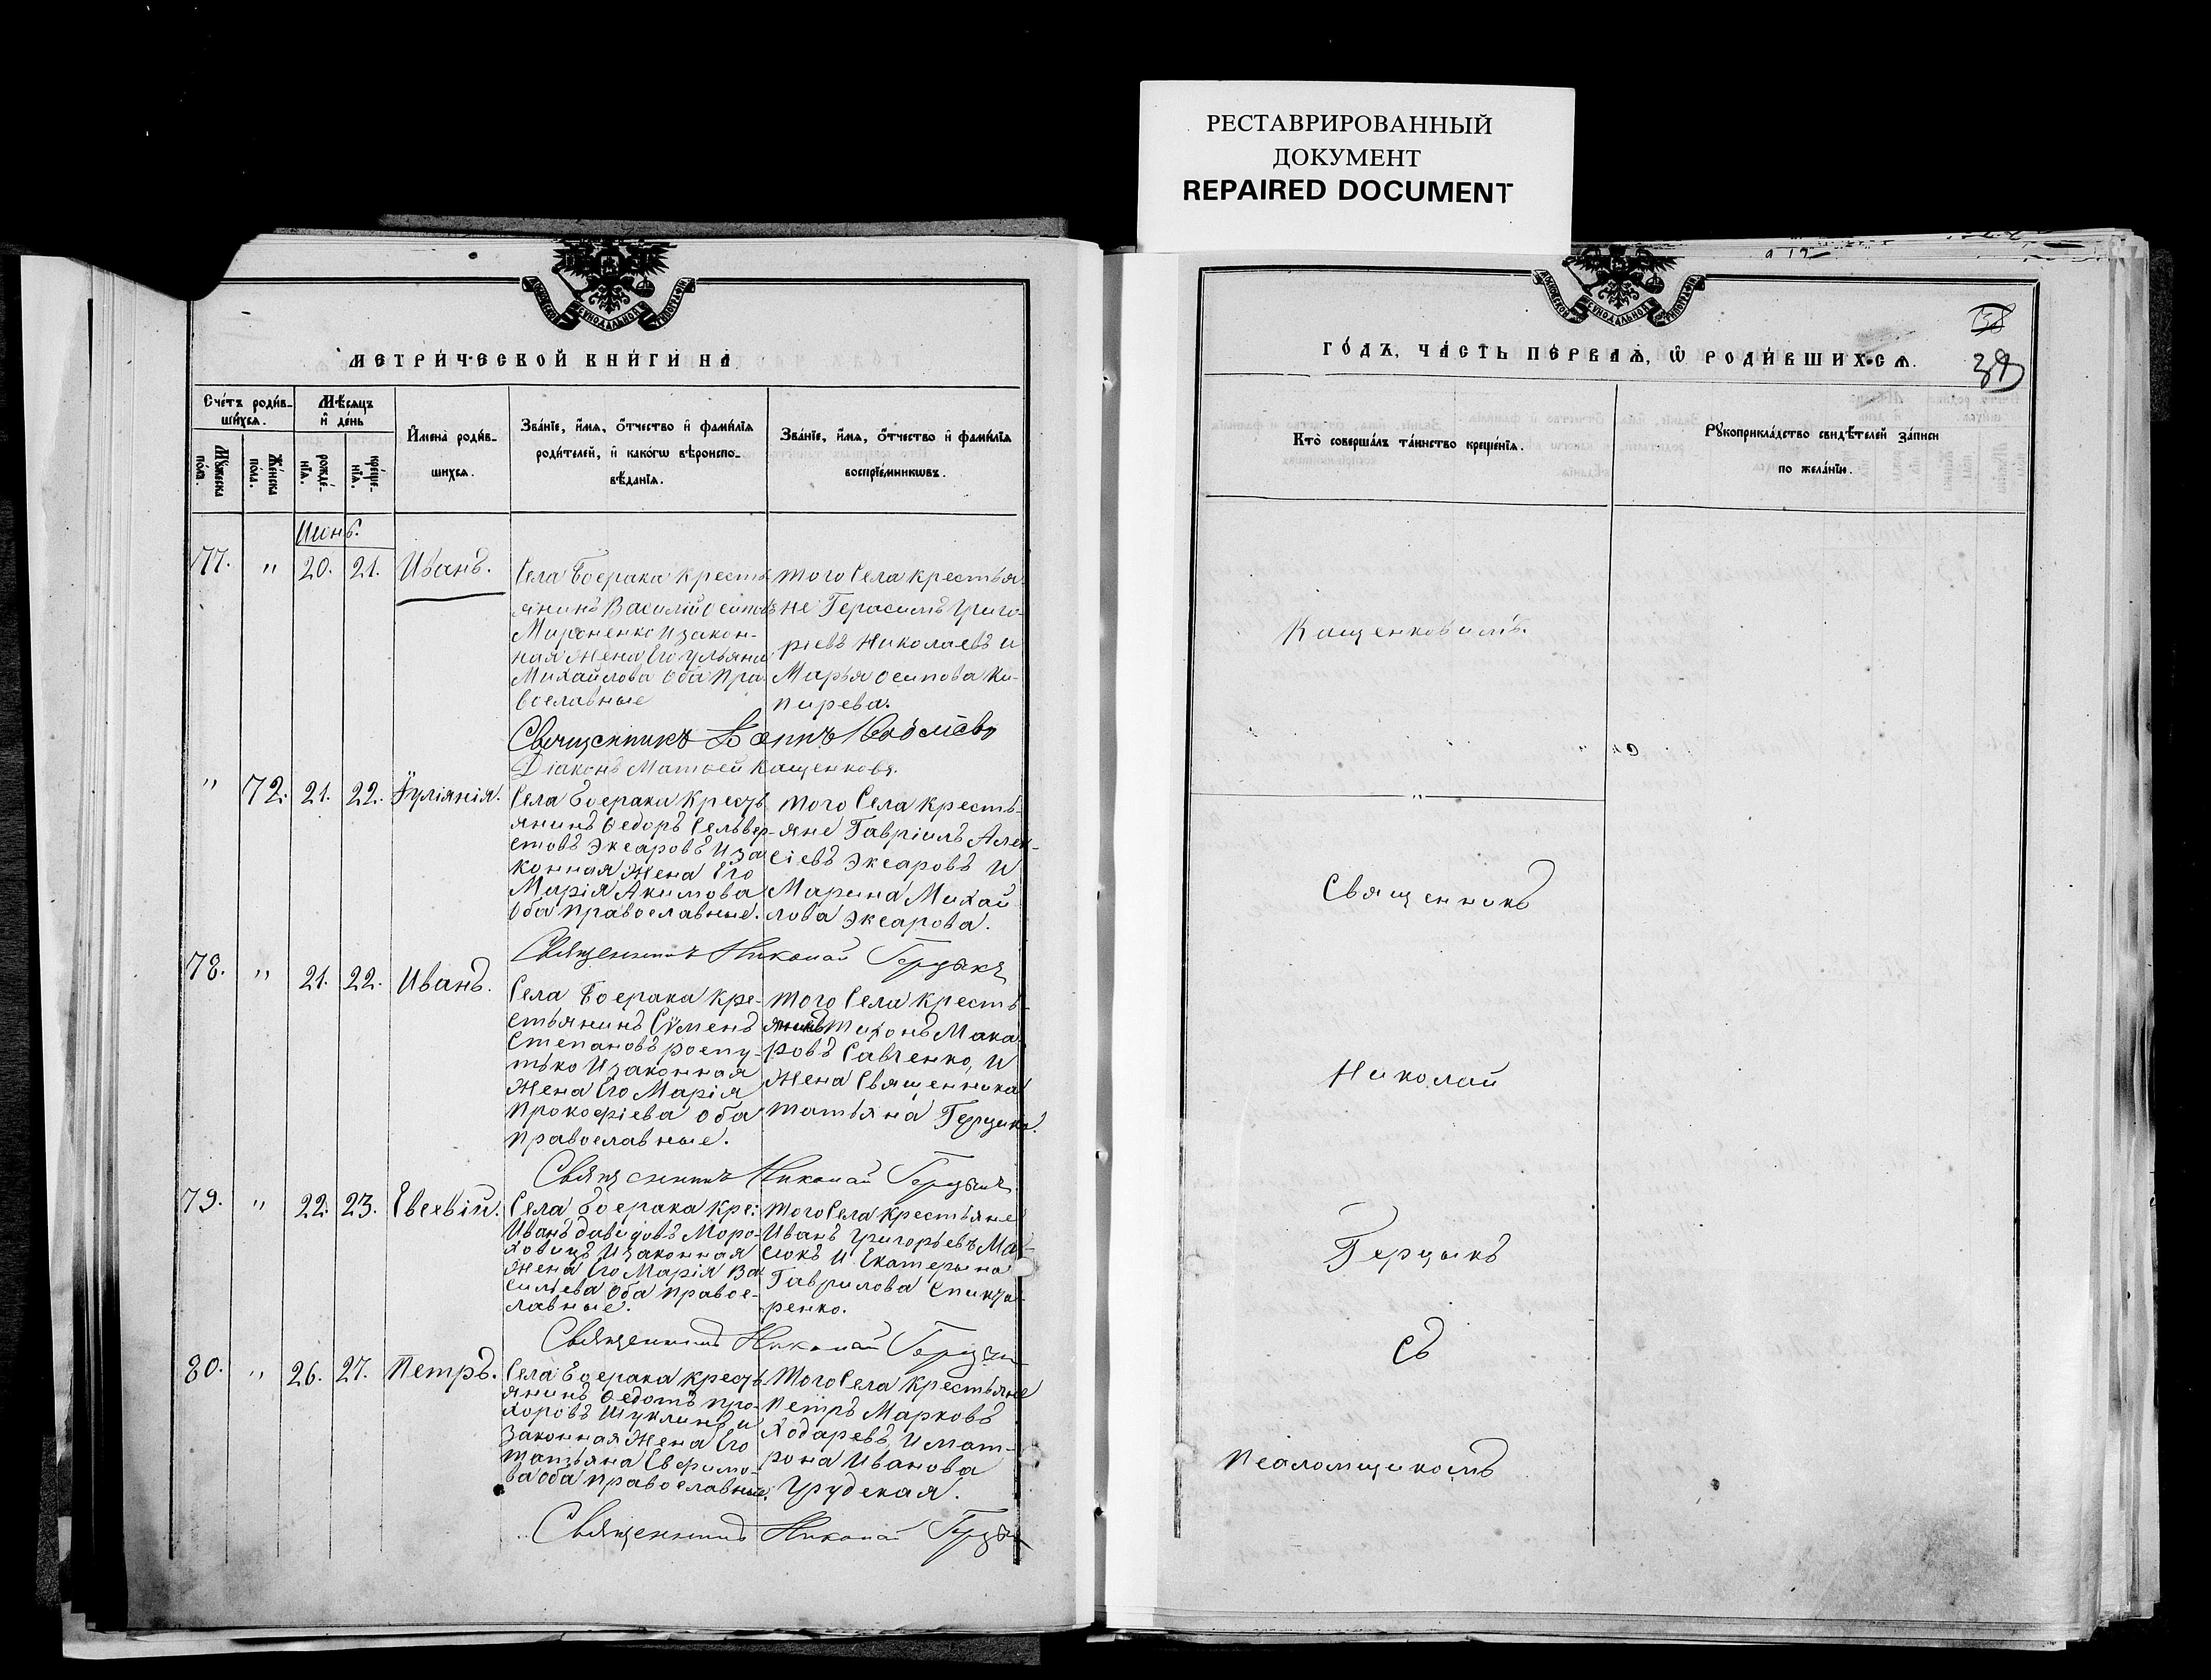 РЕСТАВРИРОВАННЫЙ
ДОКУМЕНТ
REPAIRED DOCUMENT
МЕТРИ́ЧЕСКОЙ КНИ́ГИ НА
Сче́тъ роди́в-
ши́хся.
Мѣ́сяцъ
и҆ де́нь
Мꙋ́жеска
по́ла.
Же́нска
по́ла.
рожде́-
нїѧ.
креще́-
нїѧ.
И҆мена̀ роди́в-
шихсѧ.
Зва́нїе, и҆́мѧ, ѻ҆́тчество и҆ фамилїѧ
роди́телей, и҆ како́гѡ вѣроиспо-
вѣ́данїѧ.
Зва́нїе, и҆́мѧ, ѻ҆́тчество и҆ фами́лїѧ
воспрїе́мникѡвъ.
Июнь.
77. " 20. 21. Иванъ.
Села Боерака кресть
янинъ Василій Осиповъ
Мироненко и закон-
ная жена его Ульяна
Михайлова оба пра
вославные
того Села крестья
не Герасимъ Григо-
ріевъ Николаевъ и
Марья Осипова Ки-
пирева.
Священникъ
Діаконъ Матѳей Кащенковъ.
" 72. 21. 22. Іуліянія.
Села Боерака Кресть
янинъ Ѳедоръ Сельвер-
стовъ Эксаровъ и за
конная жена его
Марія Акимова
оба православные.
того Села кресть-
яне Гавріилъ Алек-
сіевъ Эксаровъ и
Марина Михай
лова Эксарова.
Священникъ Николай Герцыкъ
78. " 21. 22. Иванъ.
Села Боерака кре-
стьянинъ Сѵменъ
Степановъ роспу-
тько и законная
жена его Марія
Прокофіева оба
православные.
того Села кресть-
янинъ Тихонъ Мака
ровъ Савченко, и
жена Священника
Татьяна Герцыкъ.
Священникъ Николай Герцыкъ
79. " 22. 23. Евсевій.
Села Боерака кре:
Иванъ Давидовъ Моро-
ховецъ и законная
жена его Марія Ва
сильева оба правос-
лавные.
того Села крестьяне
Иванъ Григорьевъ Ма-
сюкъ и Екатерина
Гаврилова
ренко.
Священникъ Николай Герцыкъ
80. " 26. 27. Петръ.
Села Боерака кресть
янинъ Ѳедотъ Про-
хоровъ Шуклинъ и
законная жена его
Татьяна Ефимо-
ва оба православные.
Того Села крестьяне
Петръ Марковъ
Ходаревъ и Мат-
рона Иванова
Грудская.
Священникъ Николай Герцыкъ
ГО́ДЪ, ЧА́СТЬ ПЕ́РВАѦ, Ѡ҆ РОДИ́ВШИХСѦ.
38
39
Кто̀ соверша́лъ та́инство креще́нїѧ.
Рꙋкоприкла́дство свидѣ́телей за́писи
по жела́нїю.
Кащенковымъ.
Священникъ
Николай
Герцыкъ
Съ
Псаломщикомъ